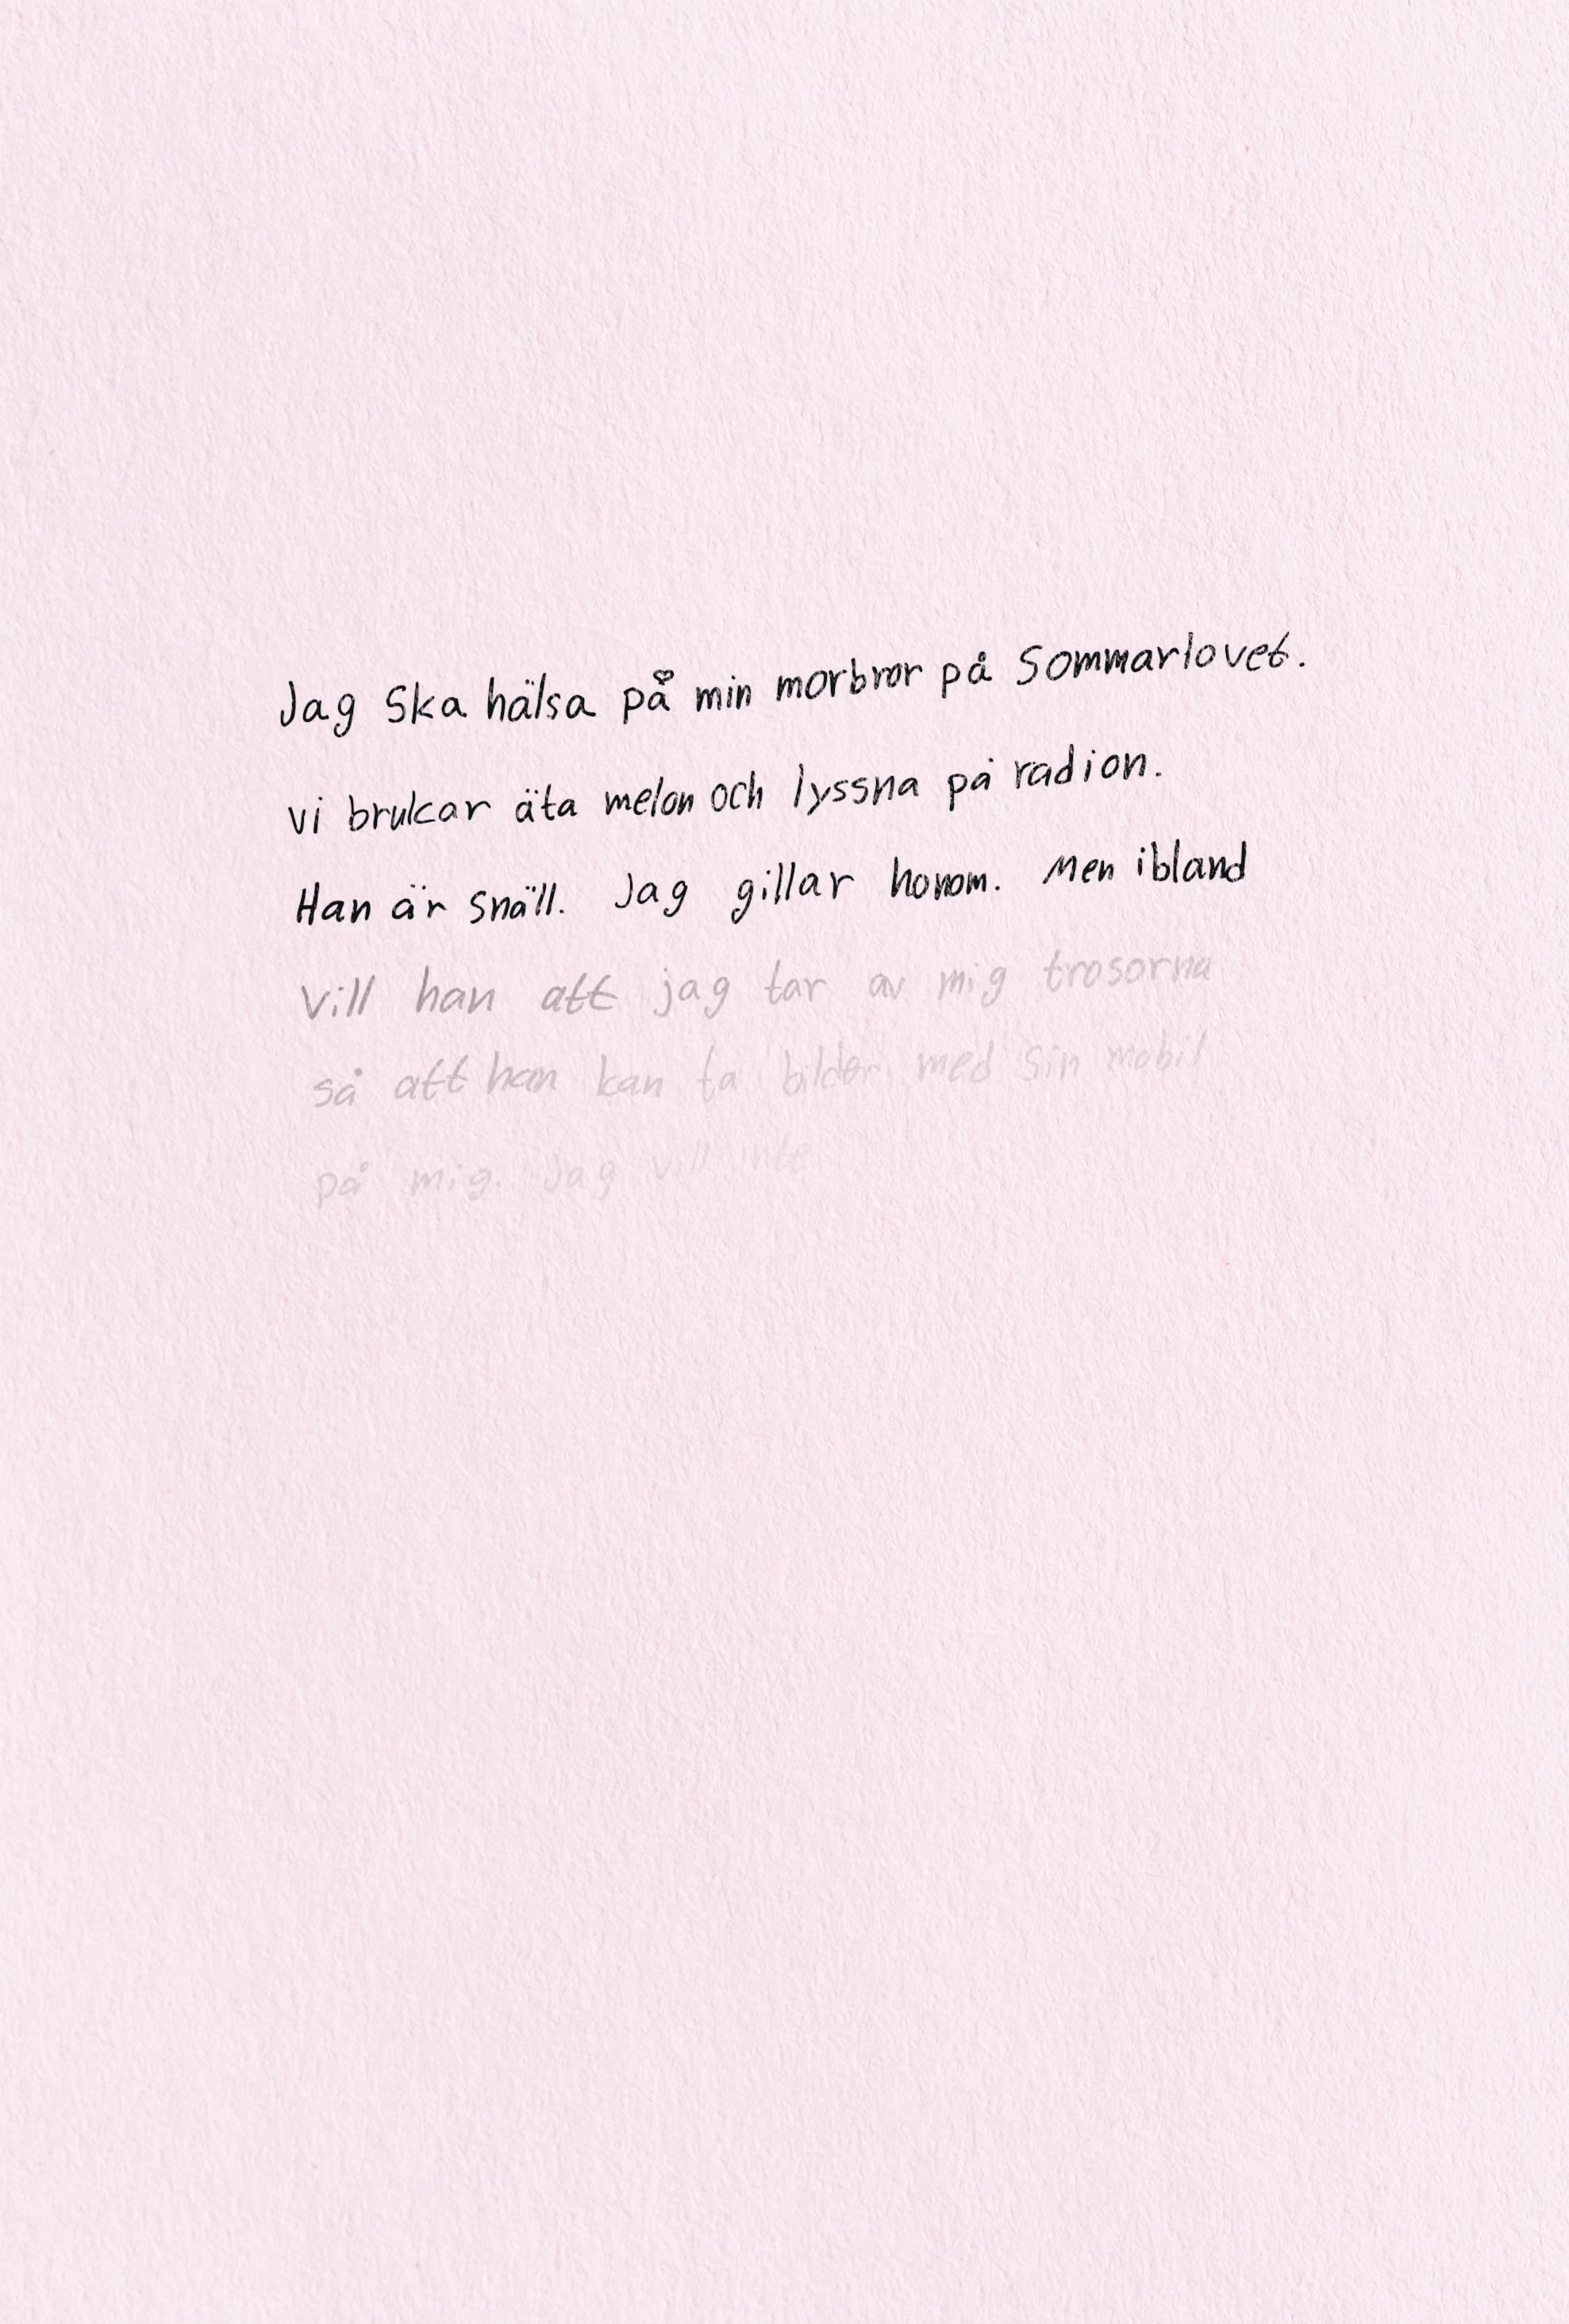 Jag ska hälsa på min morbror på sommarlovet.
vi brukar äta melon och lyssna på radion.
Han är snäll. Jag gillar honom. Men ibland
vill han att jag tar av mig trosorna
så att han kan ta bilder med sin mobil
på mig. Jag vill inte